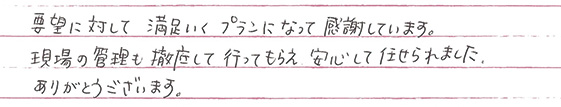 要望に対して 満足いく プランになって 感謝しています。
現場の管理も 徹底して 行ってもらえ 安心して 任せられました。
ありがとうございます。